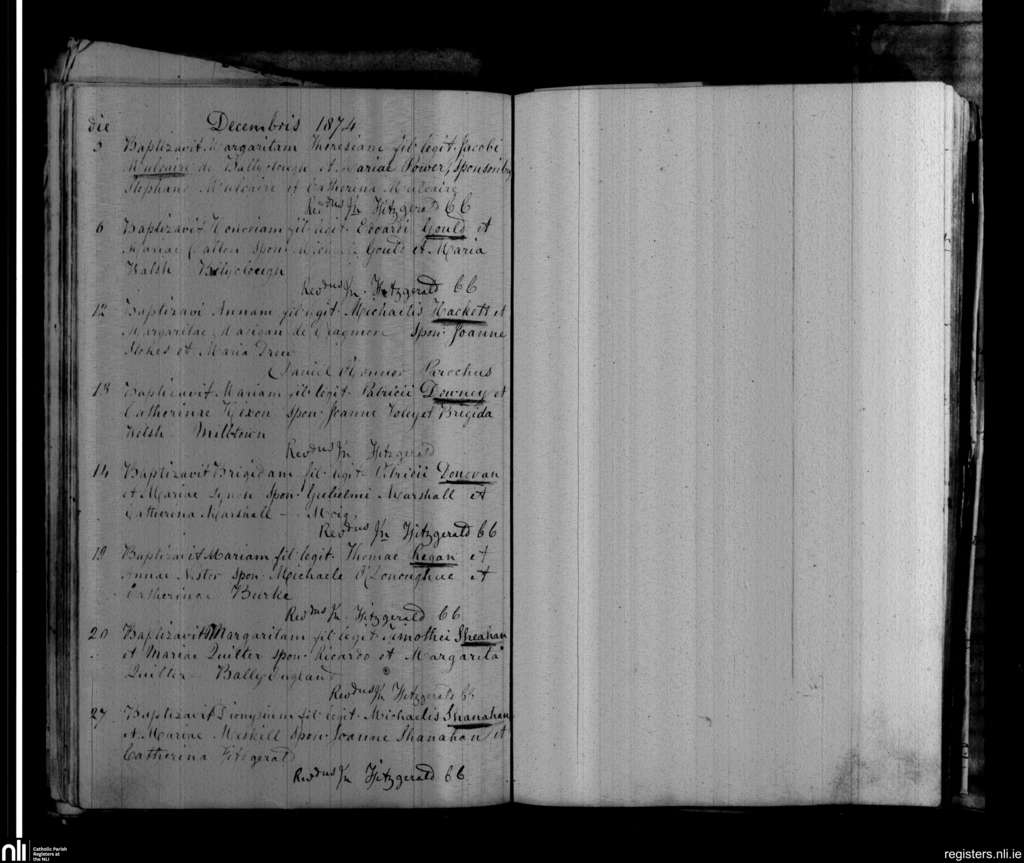 die Decembris 1874
5 Baptizavit Margaritam Theresiam fil legit. Jacobi
Mulcaire de Ballyclough et Mariae Power, sponsorib
Stephano Mulcaire et Catherina Mulcaire
Revdus Jn Fitzgerald CC
6 Baptizavit Honoriam fil legit. Edvardi Gould et
Mariae spon. Gould et Maria
Walsh
Revdus Jn. Fitzgerald CC
12 Baptizavi Annam fil legit. Michaelis Hackett et
Margaritae de spon. Joanne
Stokes et Maria Drew
Daniel O'Connor Parochus
13 Baptizavit Mariam fil legit. Patricii Downey et
Catherinae Hixon spon. Joanne Foley et Bregida
Welsh Milltown
Revdus Jn Fitzgerald
14 Baptizavit Brigidam fil legit. Donovan
et Mariae spon. Gulielmi Marshall et
Catherina Marshall
Revdus Jn Fitzgerald CC
19 Baptizavit Mariam fil legit. Thomae Regan et
Annae Nestor spon. Michaele O'Donoughue et
Catherinae Burke
Revdus Jn. Fitzgerald CC
20 Baptizavit Margaritam fil legit. Timothei Sheahan
et Mariae Quilter spon. Ricardo et Margarita
Quilter Ballyengland
Revdus Jn Fitzgerald CC
27 Baptizavit Dionysium fil legit. Michaelis Shanahan
et Mariae Meskell spon. Joanne Shanahan et
Catherina Fitzgerald
Revdus Jn Fitzgerald CC
nli Catholic Parish
Registers at
the NLI
registers.nli.ie